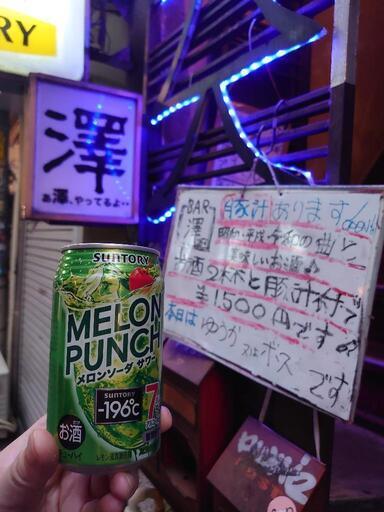 RY
澤
お澤、やってるよ‥
BAR
澤
豚汁あります
昭和・平成・令和の曲と
美味しいお酒♪
お酒2本と豚汁付で
¥1,500円です
本日は ゆうか ボス です
SUNTORY
MELON
PUNCH
メロンソーダサワー
SUNTORY
-196℃
7
お酒